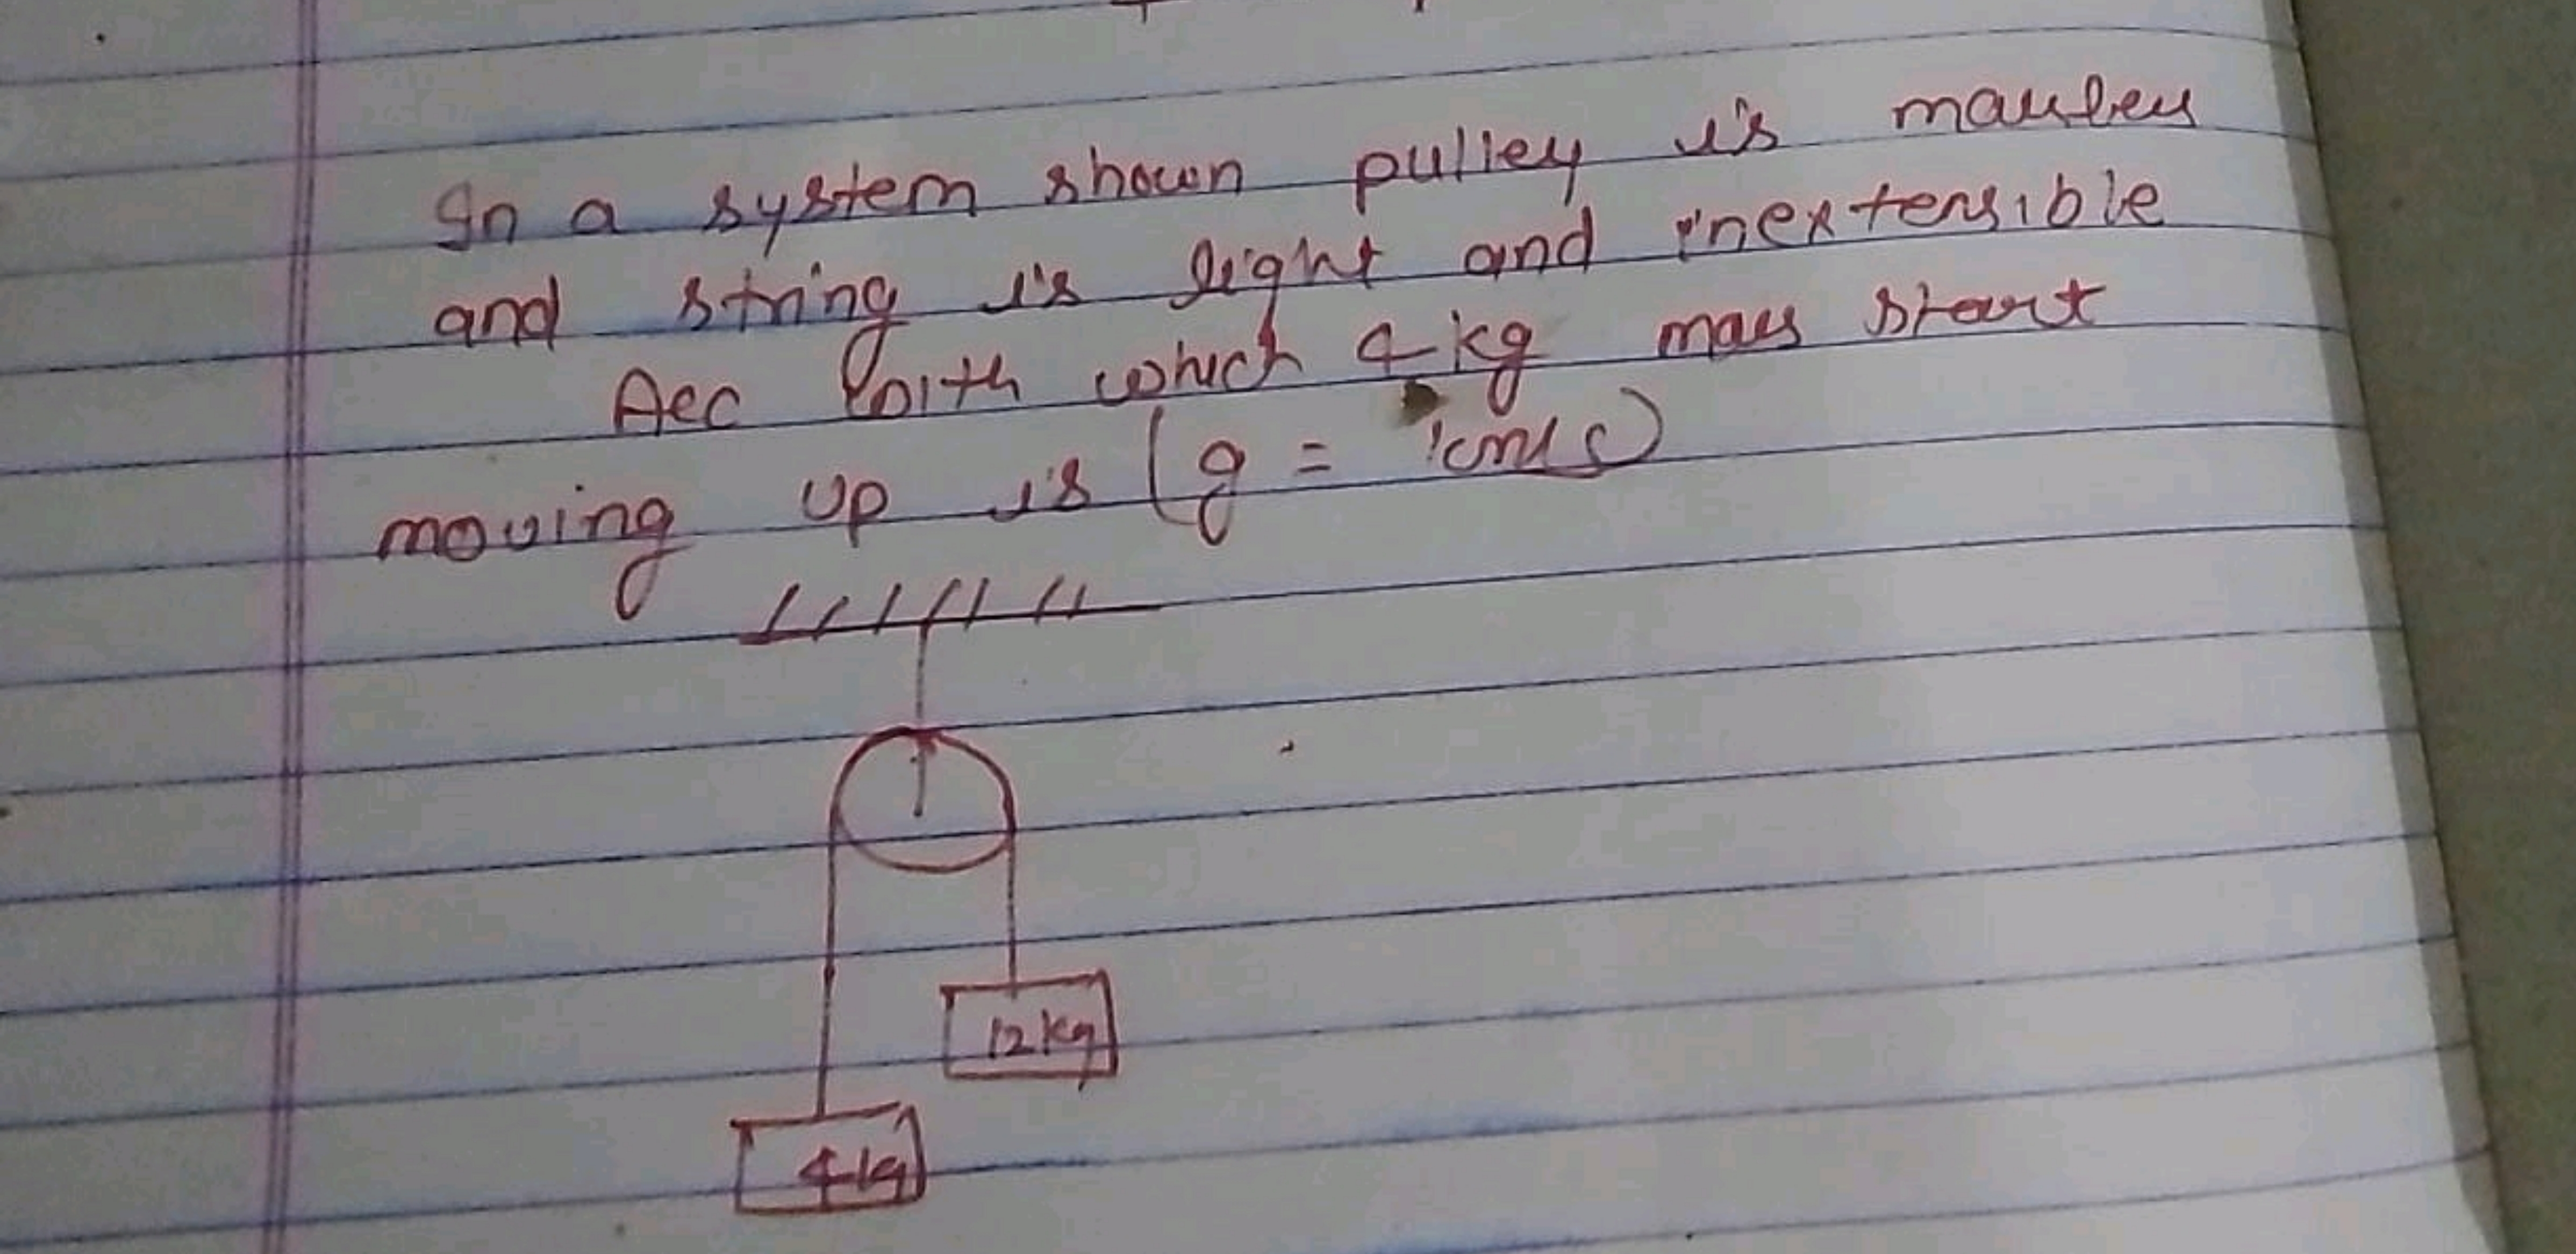 In a system shown pulley is massless
and string is light and inextensible
Acc with which 4kg mass start
moving up is (g =
12kg
4kg